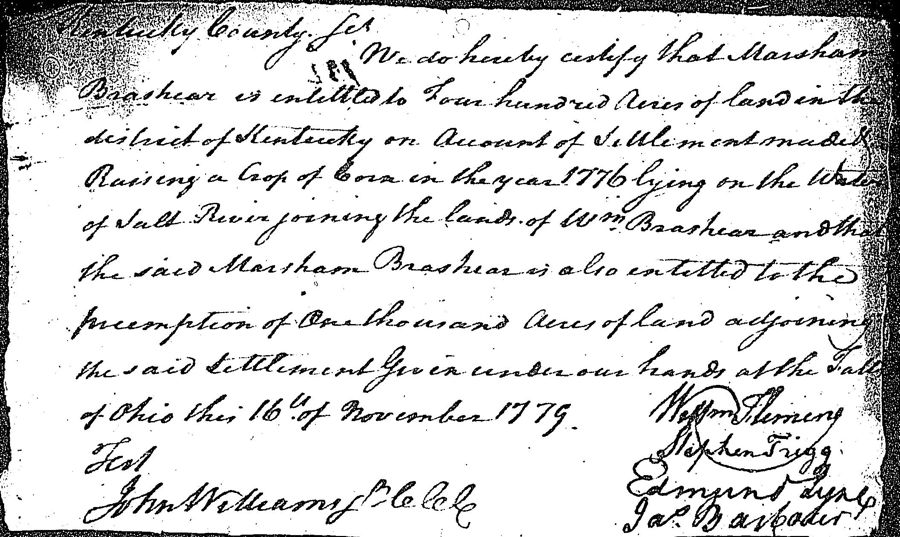 Kentucky County. Sct
We do hereby certify that Marsham
Brashear is entitled to Four hundred Acres of land in the
district of Kentucky on Account of Settlement made &
Raising a Crop of Corn in the year 1776 lying on the Water
of Salt River joining the lands of Wm Brashear and that
the said Marsham Brashear is also entitled to the
preemption of One thousand Acres of land adjoining
the said Settlement Given under our hands at the Falls
of Ohio this 16th of November 1779
Test
Wm Fleming
Stephen Trigg
John Williams Jr C C C
Edmund Lyne
Jas. Barbour